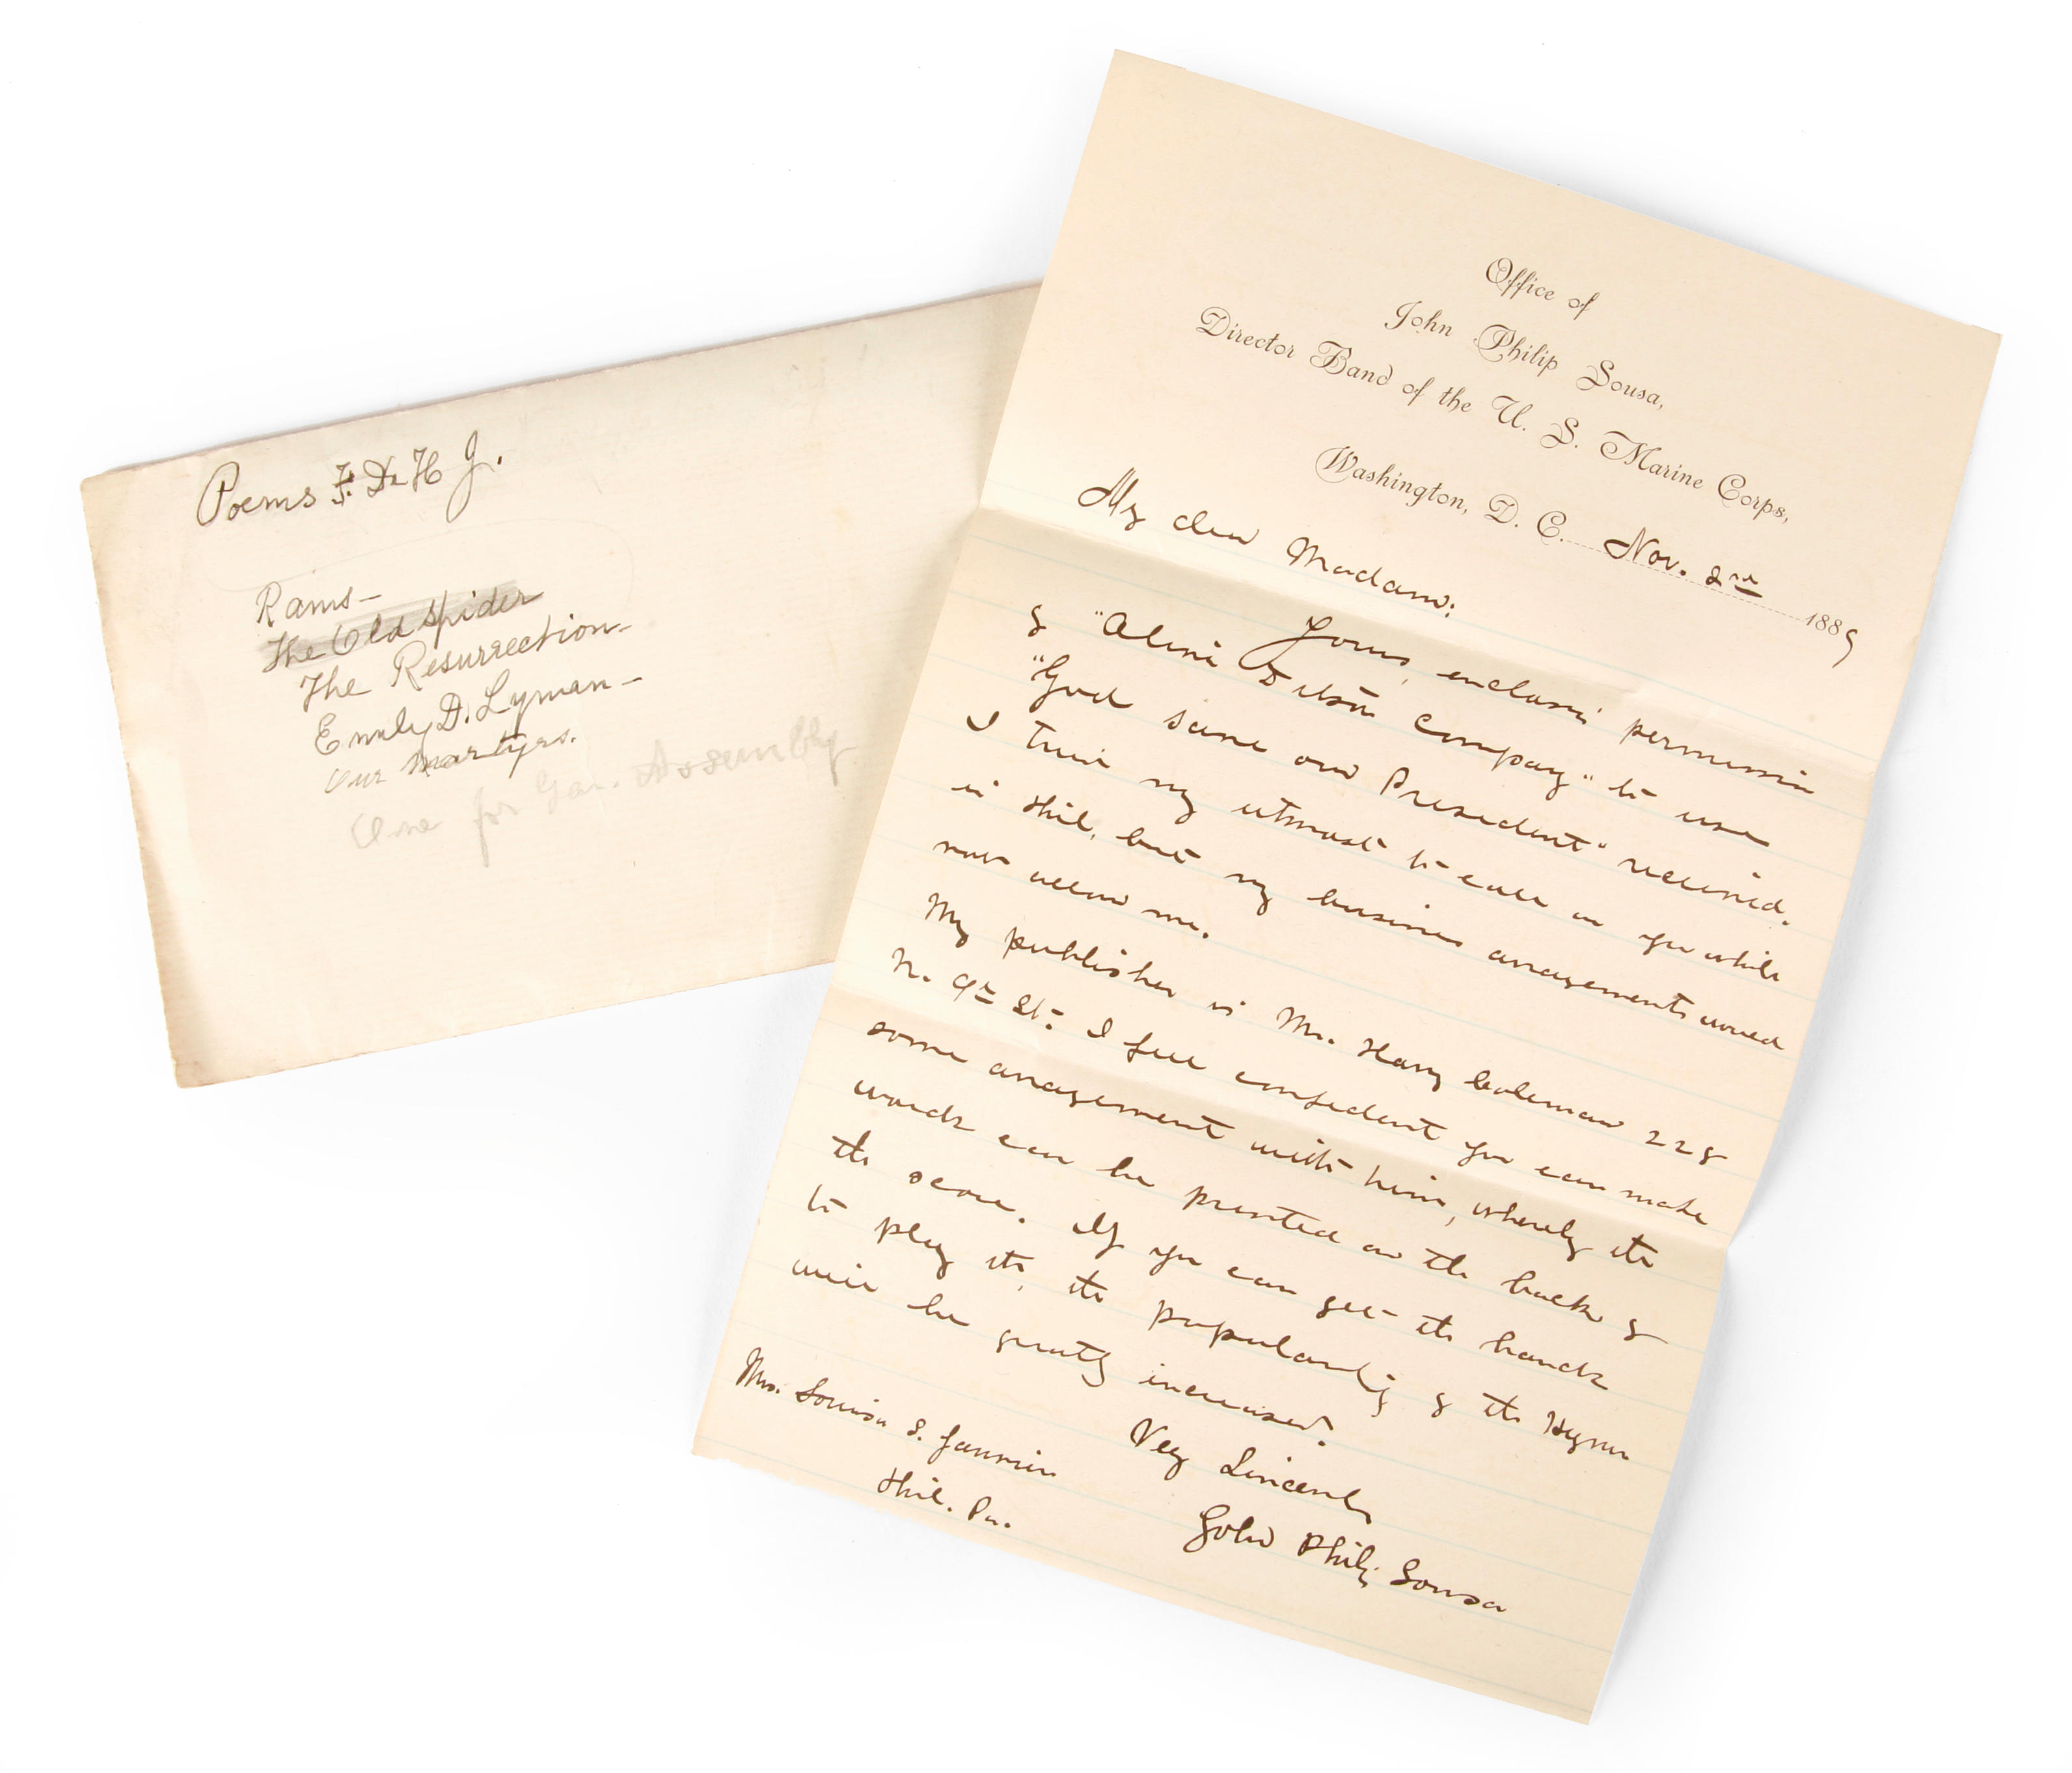 Poems F. De H J.
Rams—
The Old Spider
The Resurrection—
Emily D. Lyman—
Our Martyrs.
One for Gen. Assembly
Office of
John Philip Sousa,
Director Band of the U. S. Marine Corps,
Washington, D. C. Nov. 2nd 1889
My dear Madam:
Yours, enclosing permission
of "Oliver Ditson Company" to use
"God save our President" received.
I tried my utmost to call on you while
in Phil, but my business arrangements would
not allow me.
My publisher is Mr. Harry Coleman 228
N. 9th St. I feel confident you can make
some arragement with him, whereby the
words can be printed on the back of
the score. If you can get the bands
to play it, the popularity of the Hymn
will be greatly increased.
Very Sincerely
John Philip Sousa
Mrs. Louisa S.
Phil. Pa.